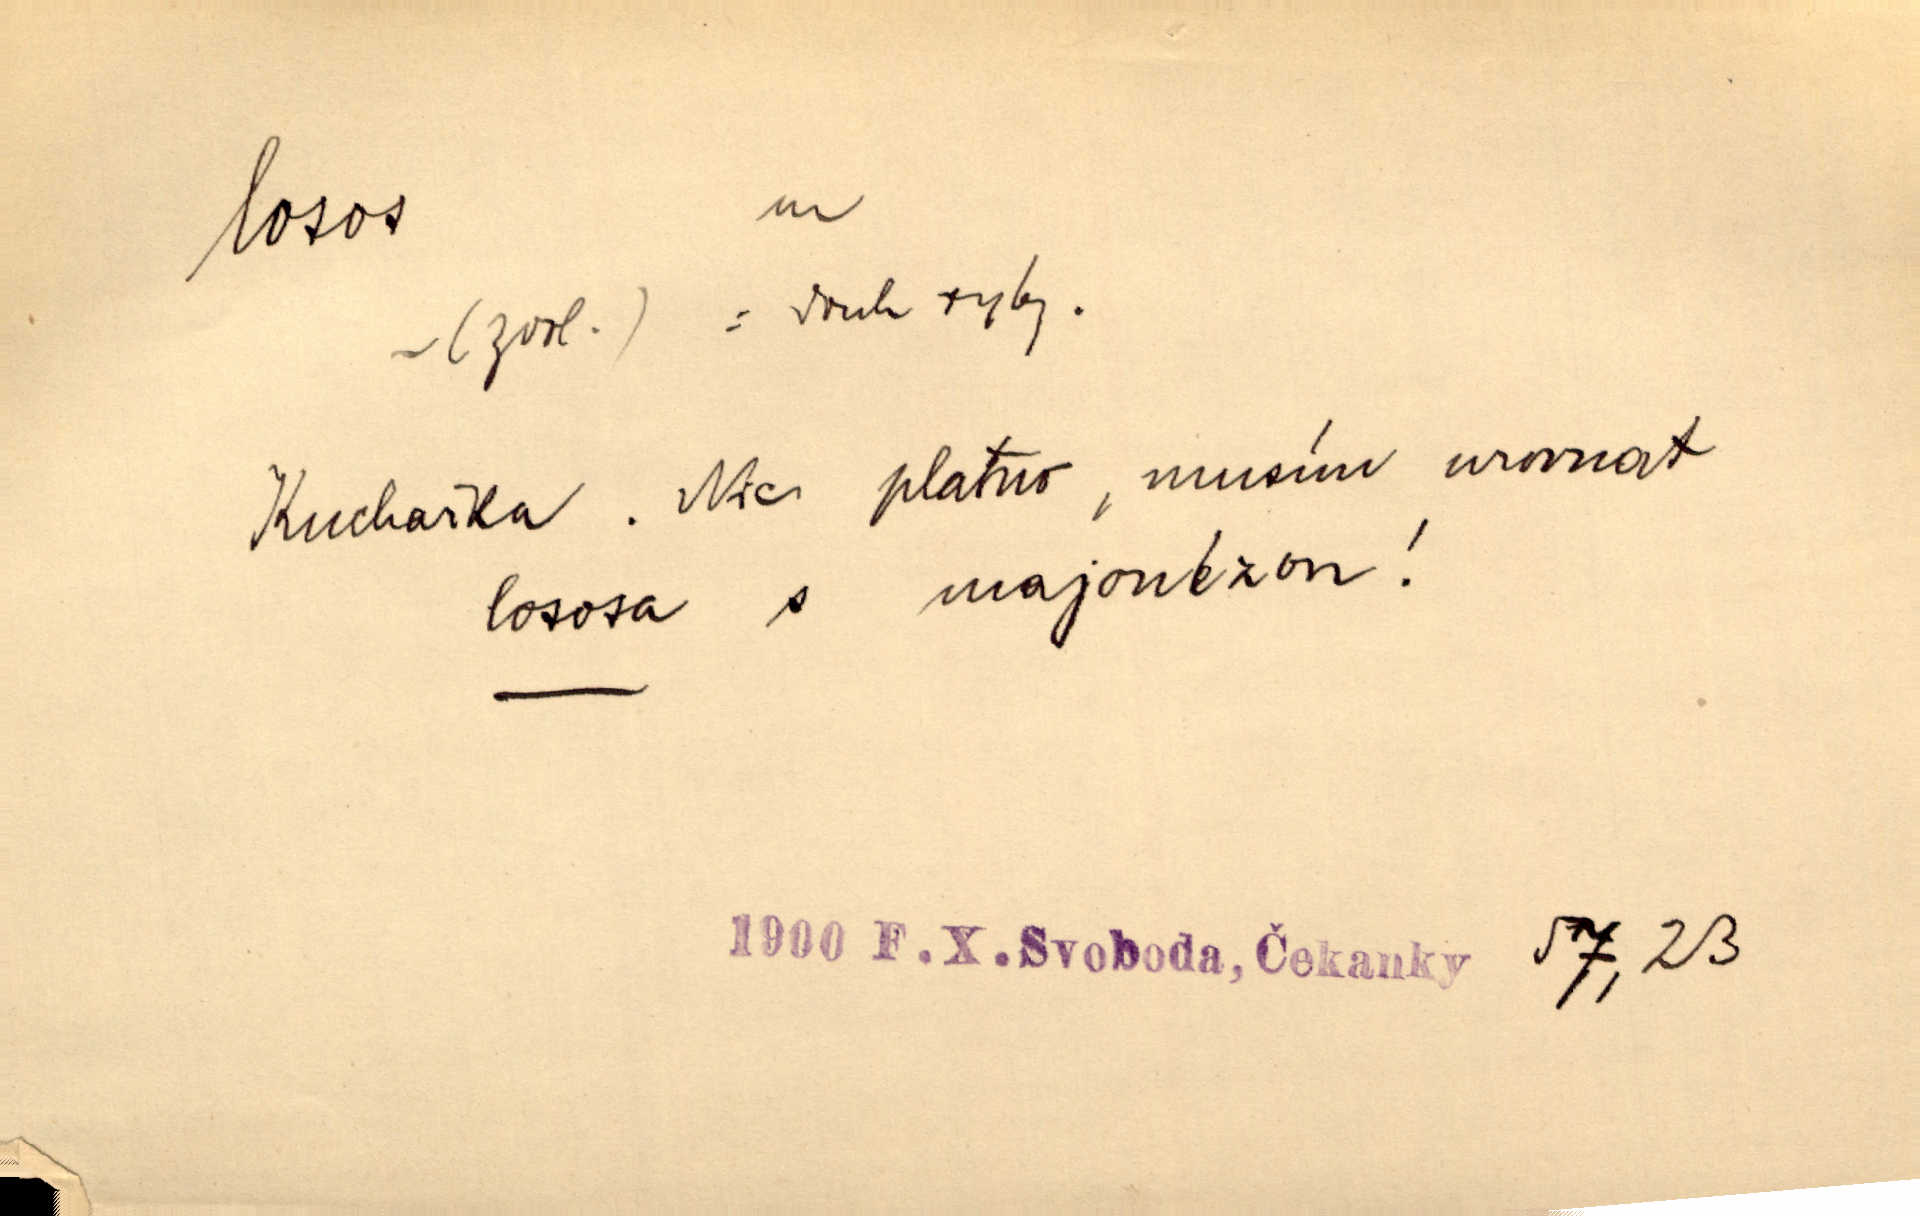 losos m
~ (zool.) = druh ryby.
Kuchařka. Nic platno, musím urovnat
lososa s majonézou!
1900 F.X.Svoboda, Čekanky 57, 23